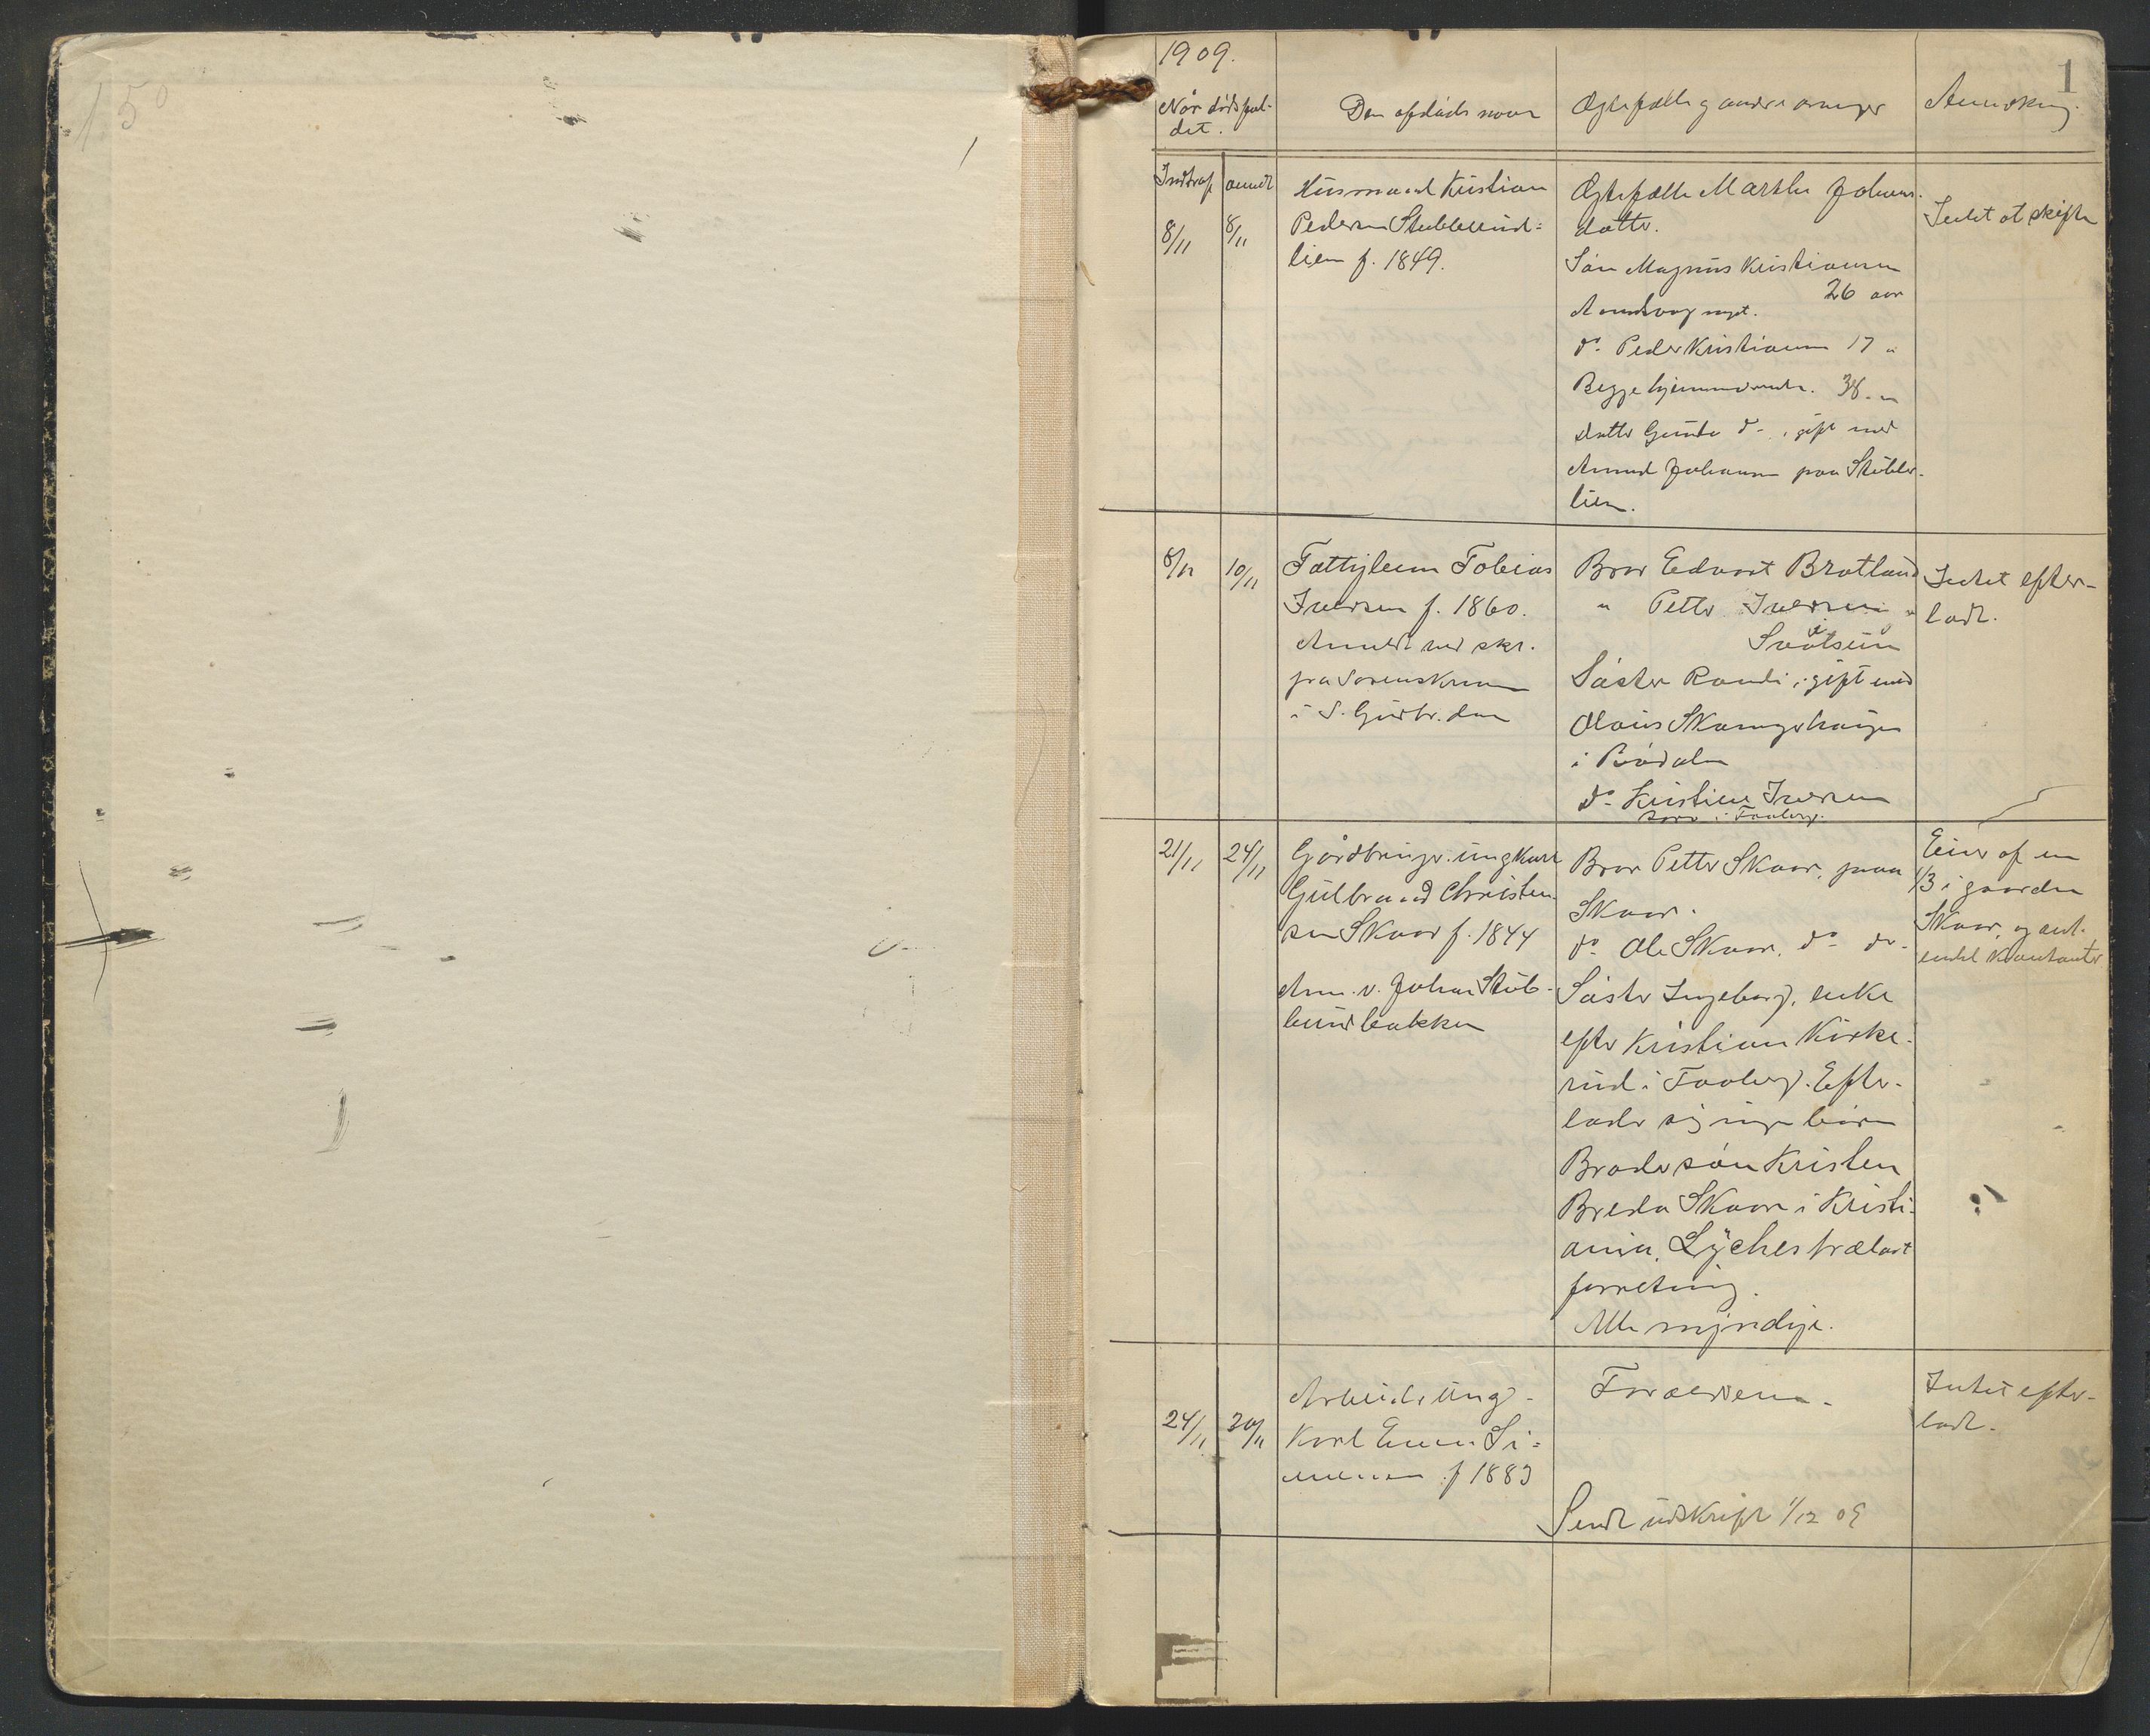 150
1
1909.
Når dødsfal-
det.
Den afdødes navn
Ægtefælle og andre arvinger
Anmerkning.
Indtraf
anmeldt
8/11
8/11
Husmand Kristian
Pedersen Stubberud-
lien f. 1849.
Ægtefælle Marthe Johans-
datter.
Søn Magnus Kristiansen
26 aar
d° Peder Kristiansen 17 "
Begge hjemmeværende. 38 "
datter d° , gift med
Amund Johansen paa Stubber-
lien.
Intet at skifte
8/11
10/11
Fattiglem Tobias
Iversen f. 1860.
Anmeldt ved skr.
fra Sorenskriveren
i S. Gudbr.dalen
Bror Edvart Bratland
" Petter Iversen "
Søster Randi, gift med
Olaus
i Bødalen
d° Kristine Iversen
i Faaberg.
Intet efter-
ladt.
21/11
24/11
Gårdbruger ungkarl
Gulbrand Christen-
sen Skaar f. 1844
Anm. v. Johan Stub-
berudbakken
Bror Petter Skaar, paa
Skaar.
d° Ole Skaar, d° d°
Søster Ingeborg, enke
efter Kristian Kirke-
rud i Faaberg. Efter-
lader sig ingen børn
Brodersøn Kristen
Breda Skaar i Kristi-
ania, Lyches trælast
forretning.
Alle myndige.
Eier af en
1/3 i gaarden
Skaar, og
endel kontanter
24/11
30/11
Arbeider ung-
karl Si-
mensen f 1883
Forældrene.
Sendt udskrift 1/12 09
Intet efter-
ladt.